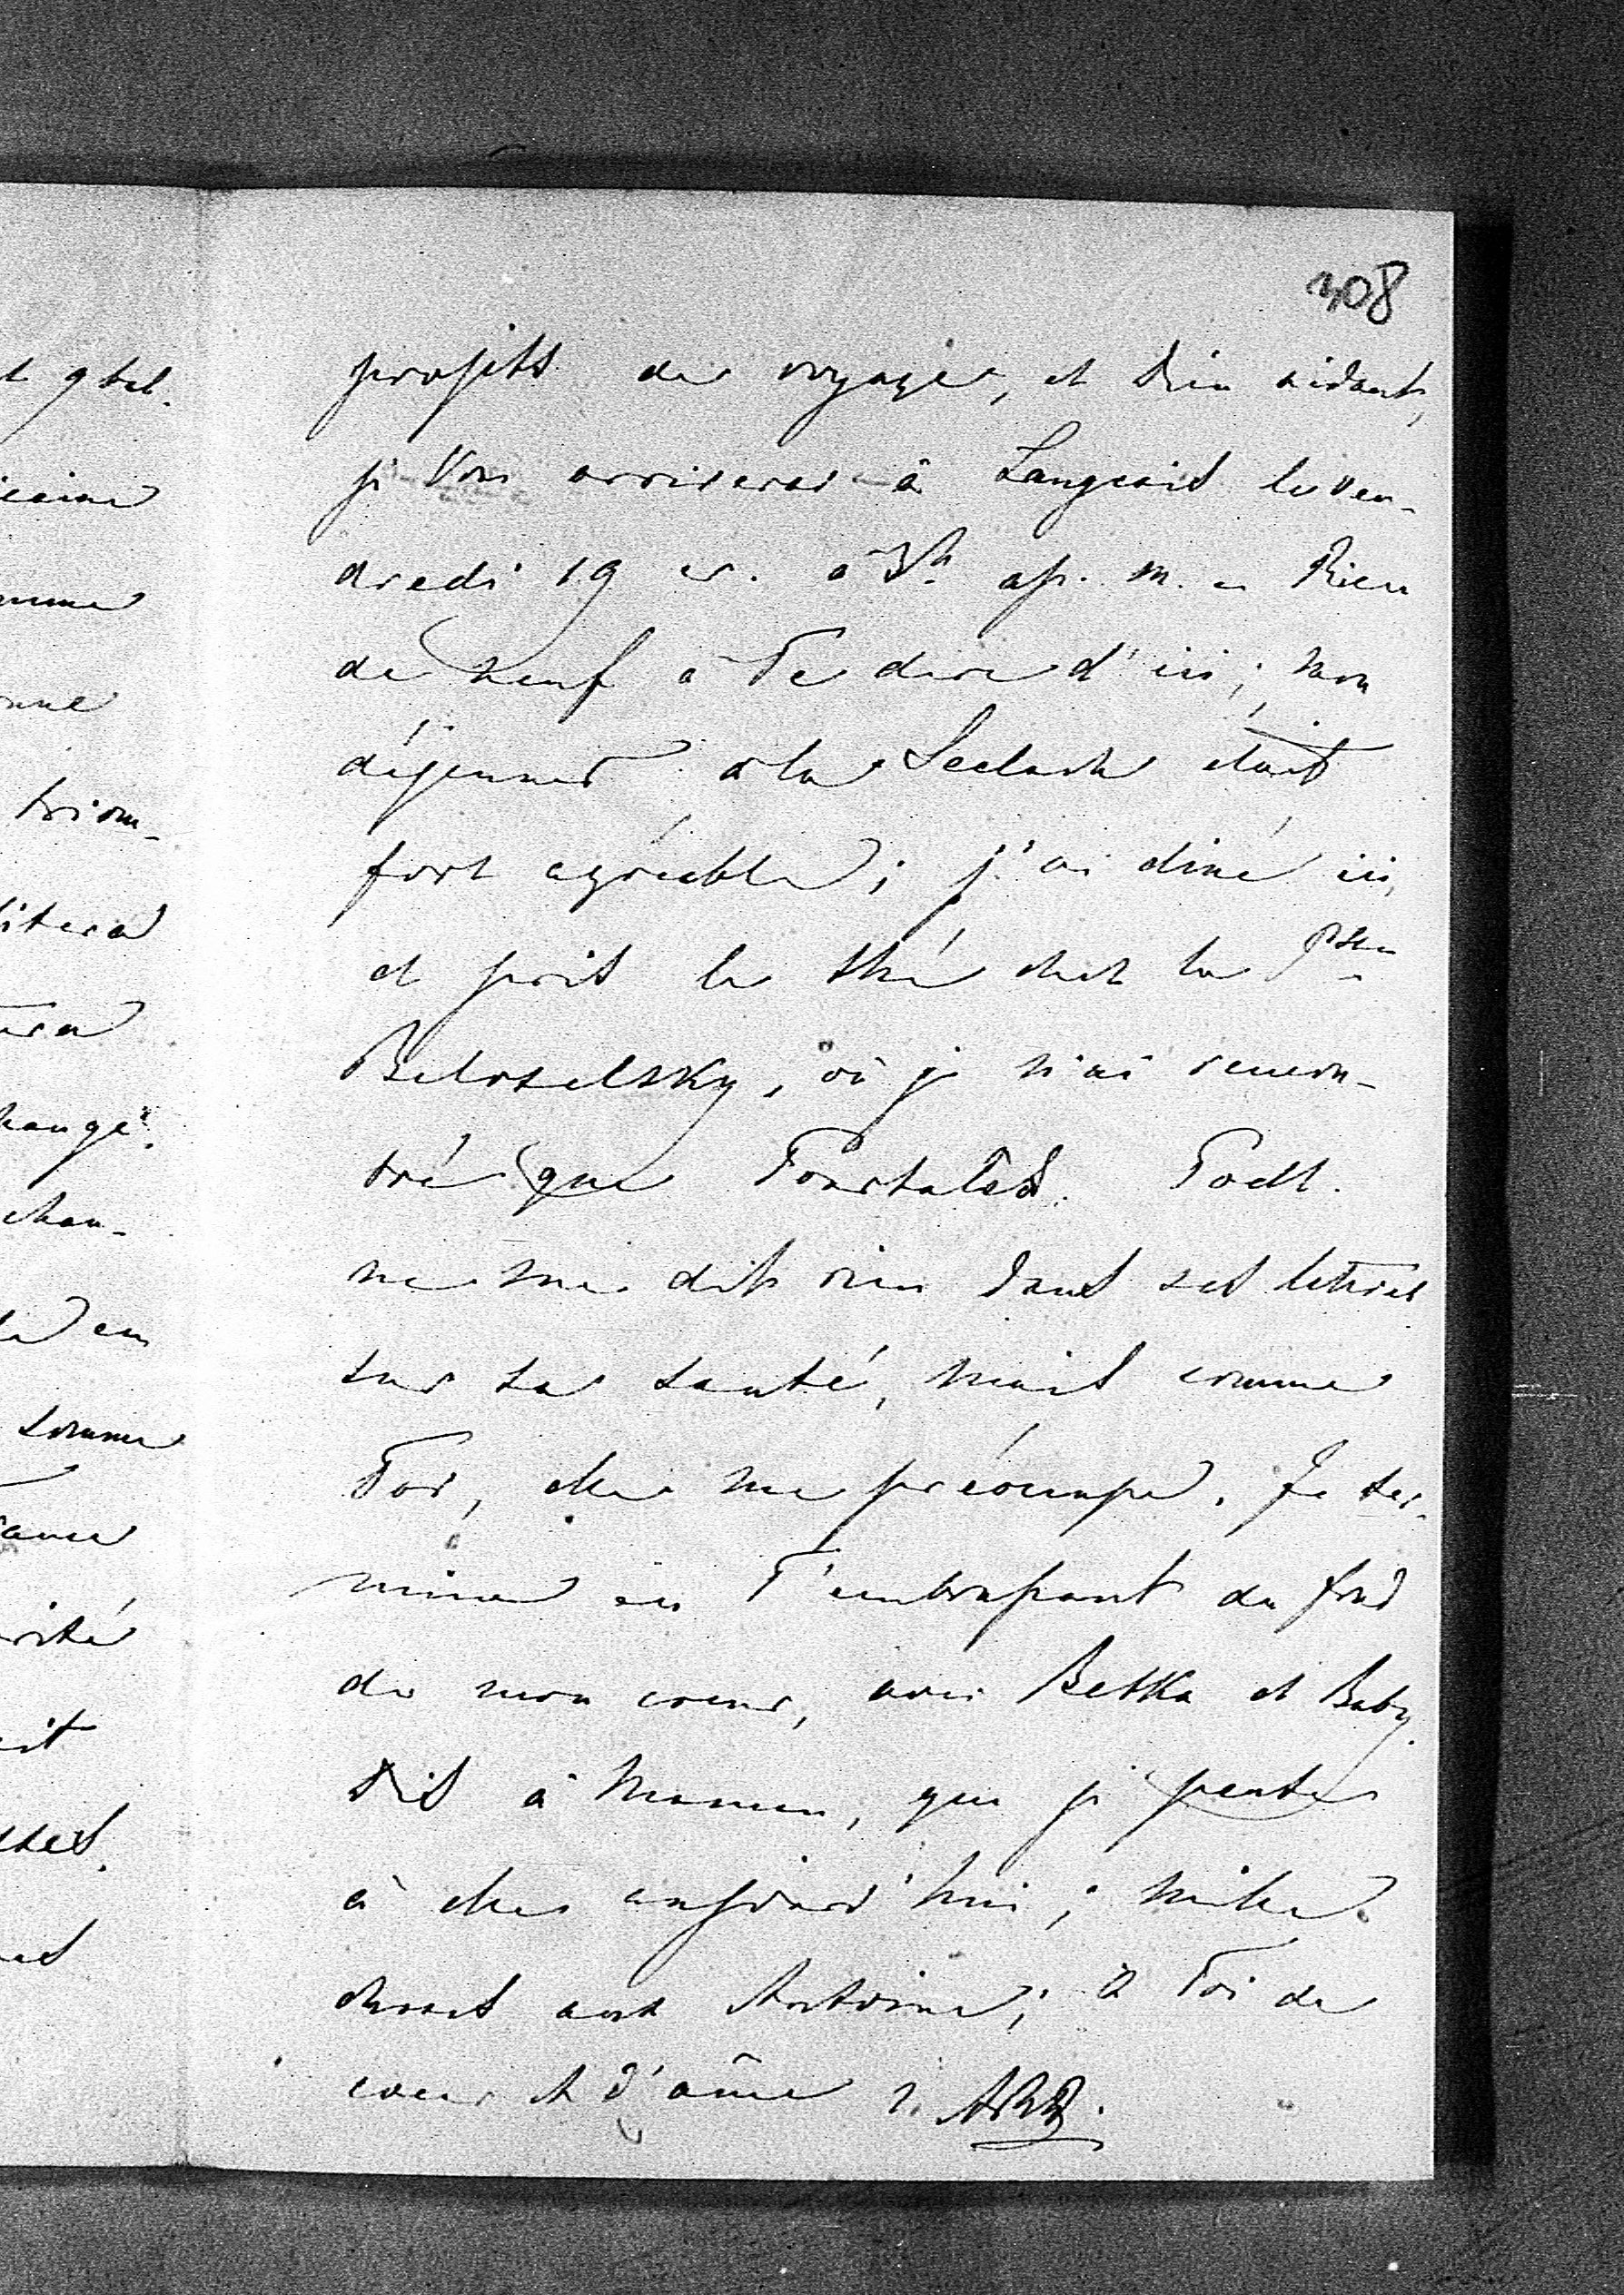 308
projets de voyage, et Dieu aidant,
je Vous arriverai à Langeais le ven-
dredi 19 cr. à 3h ap. m. – Rien
de neuf à Te dire d'ici; mon
déjeuner à la était
fort agréable; j'ai diné ici,
et pris le thé chez la Psse
Beloselsky, où je n'ai rencon-
tré que Pourtalès. Todl.
ne me dit rien dans ses lettres
sur sa santé, mais comme
Toi, elle me préoccupe. Je ter-
mine en T'embrassant du fond
de mon coeur, avec Betka et Baby.
Dis à Maman, que je pense
à elle aujourd'hui; mille
choses aux Antoine; à Toi de
coeur et d'âme
t gbel.
icaine
omme
onne
triom-
itera
era
hangé.
chan-
en
somme
ance
rité
it
ttes.
es